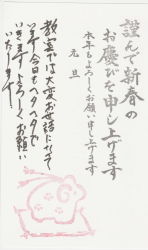 謹んで新春の
お慶びを申し上げます
本年もよろしくお願い申し上げます
元旦
教室では大変お世話になって
います 今日もヘタヘタで
いきます よろしくお願い
いたします!